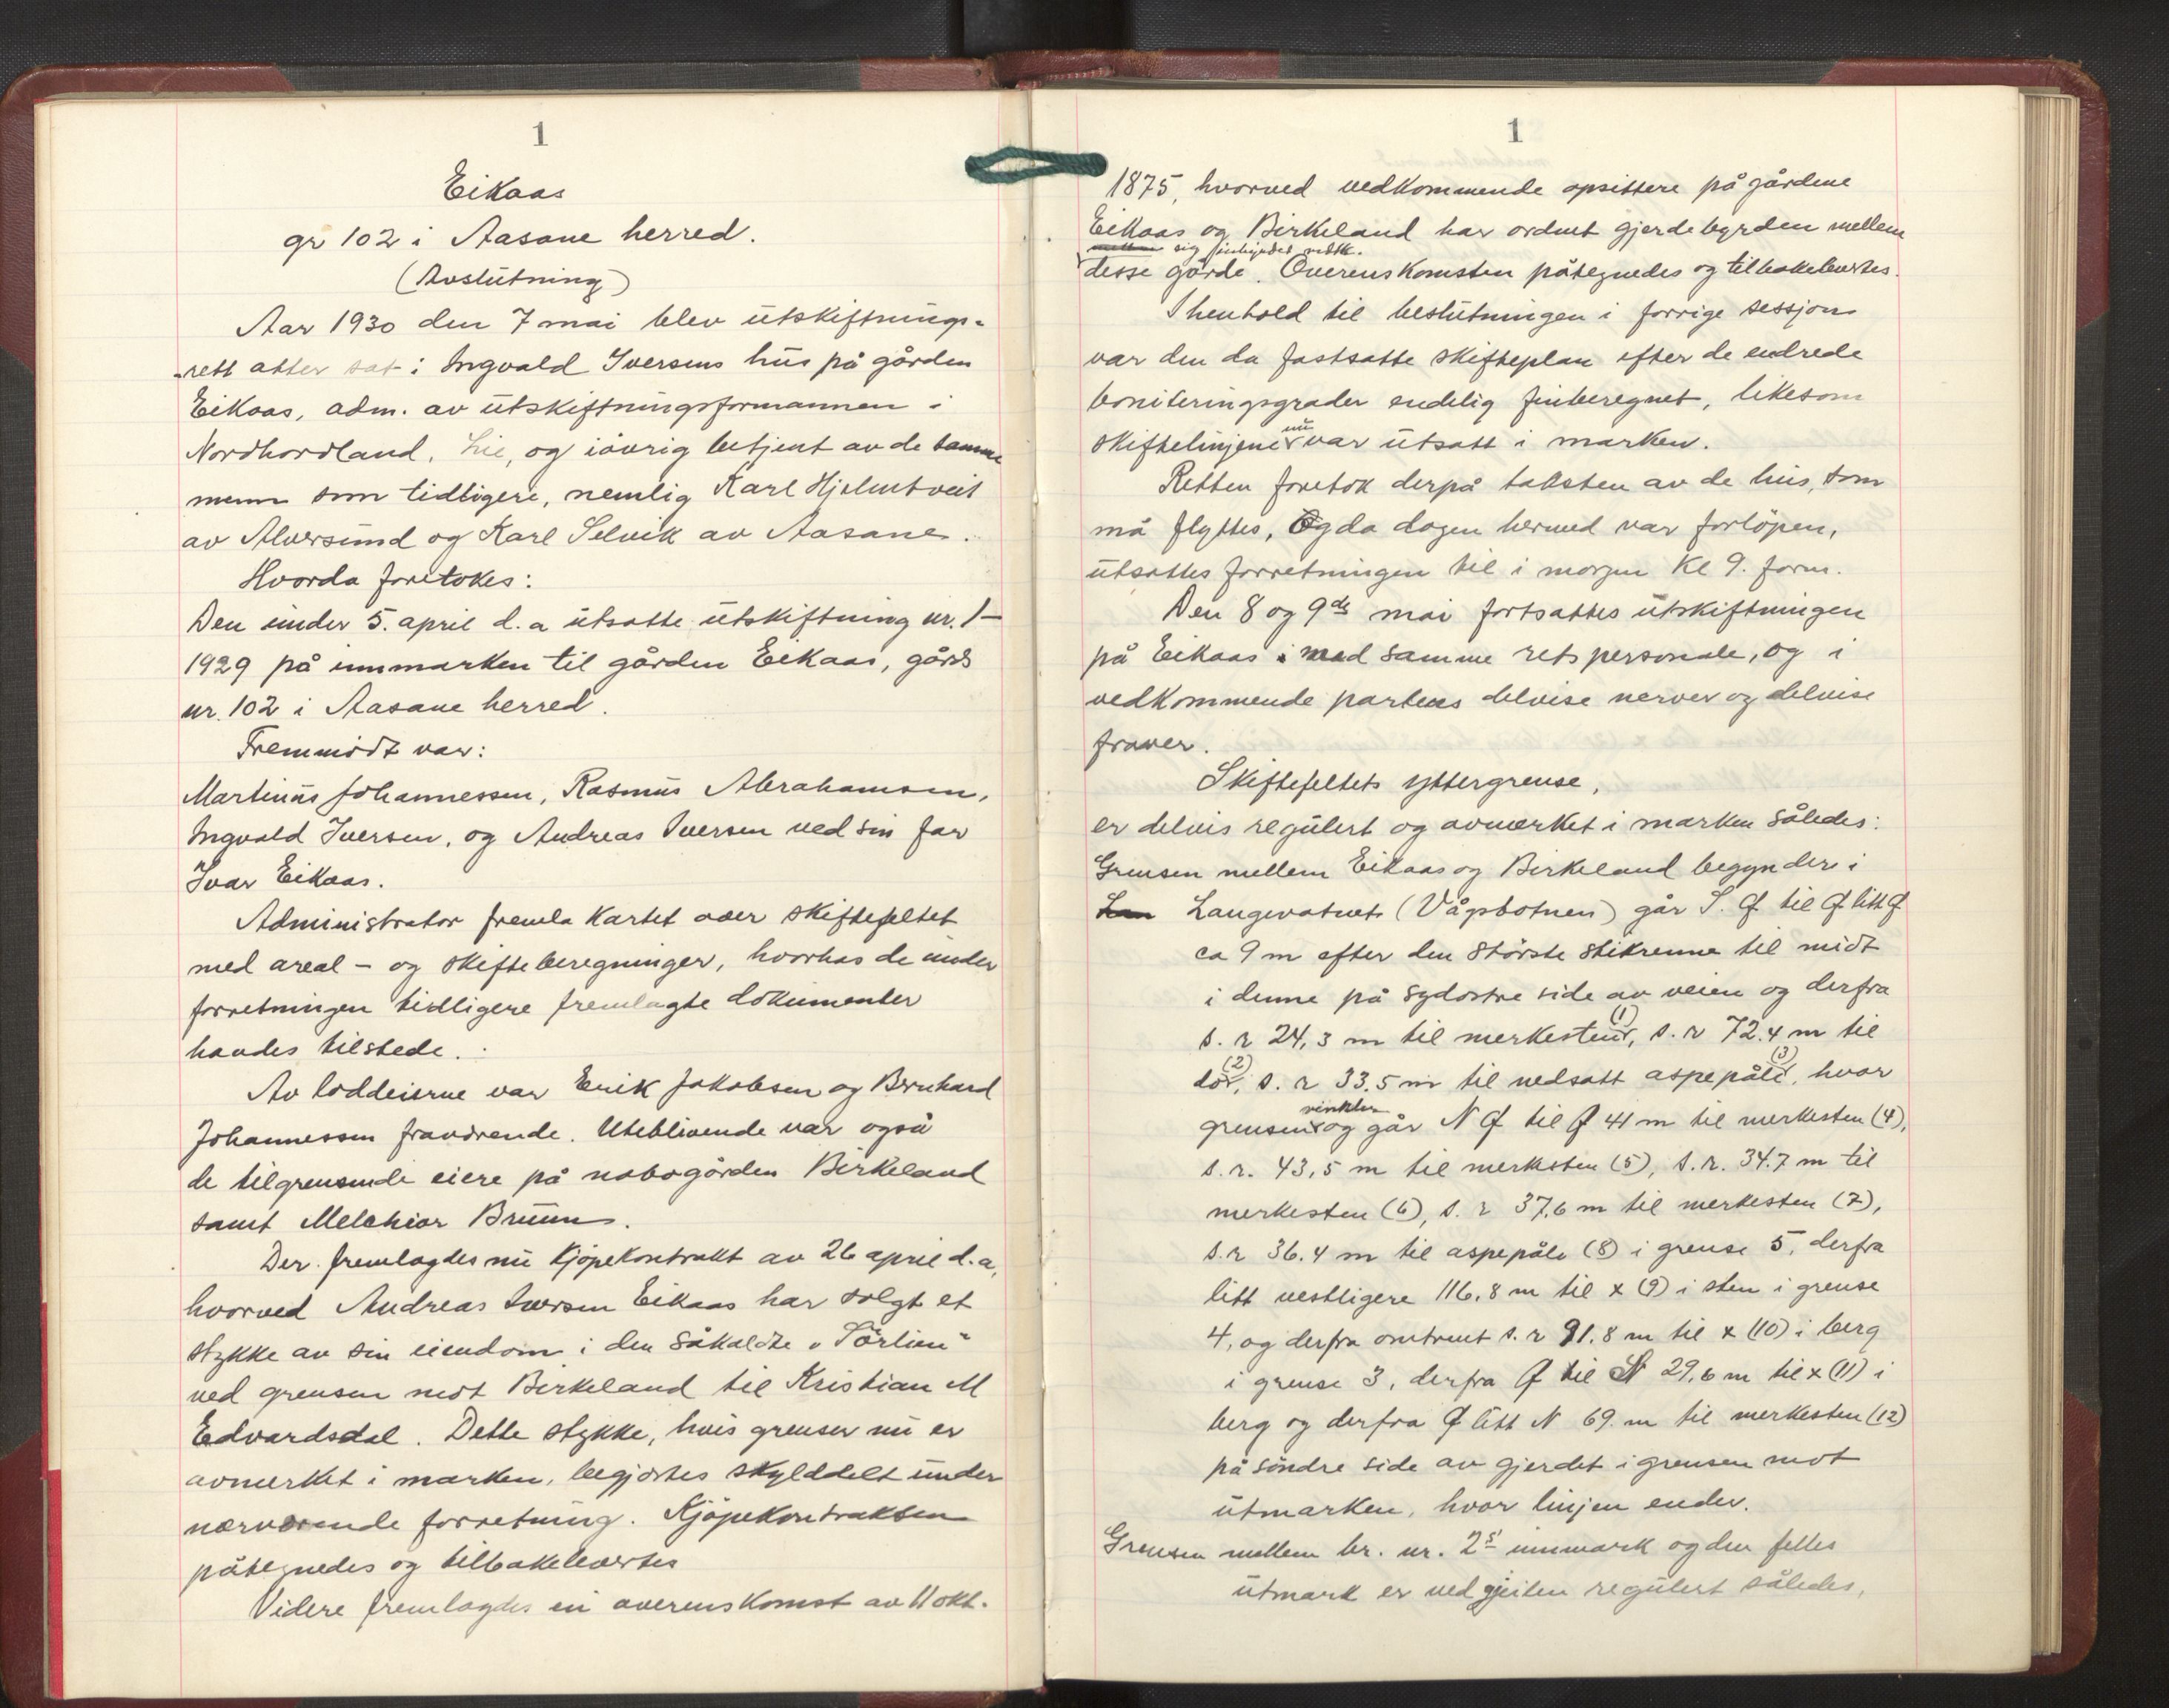 1
Eikaas
gr 102 i Aasane herred.
(Avslutning)
Aar 1930 den 7 mai blev utskiftnings-
rett atter sat i Ingvald Iversens hus på gården
Eikaas, adm. av utskiftningsformannen i
Nordhordland, Lie, og iøvrig betjent av de samme
menn som tidligere, nemlig Karl Hjelmtveit
av Alversund og Karl Selvik av Aasane.
Hvorda foretokes:
Den under 5. april d.a utsatte utskiftning nr. 1-
1929 på innmarken til gården Eikaas, gårds
nr. 102 i Aasane herred.
Fremmødt var:
Martinus Johannessen, Rasmus Abrahamsen,
Ingvald Iversen, og Andreas Iversen ved sin far
Ivar Eikaas.
Administrator fremla kartet over skiftefeltet
med areal- og skifteberegninger, hvorhos de under
forretningen tidligere fremlagte dokumenter
havdes tilstede.
Av loddeierne var Erik Jakobsen og Bernhard
Johannessen fraværende. Uteblivende var også
de tilgrensende eiere på nabogården Birkeland
samt Melchior Bruun.
Der fremlagdes nu kjøpekontrakt av 26 april d.a,
hvorved Andreas Iversen Eikaas har solgt et
stykke av sin eiendom i den såkaldte "Sørlien"
ved grensen mot Birkeland til Kristian M
Edvardsdal. Dette stykke, hvis grenser nu er
avmerket i marken, begjærtes skylddelt under
nærværende forretning. Kjøpekontrakten
påtegnedes og tilbakelevertes
Videre fremlagdes en overenskomst av 11 okt.
1
1875, hvorved vedkommende opsittere på gårdene
Eikaas og Birkeland har ordnet gjerdebyrden mellem
sig
desse gårde. Overenskomsten påtegnedes og tilbakelevertes.
I henhold til beslutningen i forrige sessjon
var den da fastsatte skifteplan efter de endrede
boniteringsgrader endelig finberegnet, likesom
nu
skiftelinjene var utsatt i marken.
Retten foretok derpå taksten av de hus, som
må flyttes, Og da dagen hermed var forløpen,
utsattes forretningen til i morgen kl 9. form.
Den 8 og 9de mai fortsattes utskiftningen
på Eikaas med samme retspersonale, og i
vedkommende parters delvise nerver og delvise
fraver.
Skiftefeltets yttergrense,
er delvis regulert og avmerket i marken således:
Grensen mellem Eikaas og Birkeland begynder i
Langevatnet (Vågsbotnen) går S. Ø til Ø litt Ø
ca 9 m efter den største stikrenne til midt
i denne på sydøstre side av veien og derfra
(1)
s. r 24,3 m til merkesten, s. r 72.4 m til
(2) (3)
do, s. r 33.5 m til nedsatt aspepåle, hvor
vinkler
grensen og går N Ø til Ø 41 m til merkesten (4),
s. r. 43,5 m til merkesten (5), s. r. 34.7 m til
merkesten (6), s. r 37,6 m til merkesten (7),
s. r 36.4 m til aspepåle (8) i grense 5, derfra
litt vestligere 116,8 m til x (9) i sten i grense
4, og derfra omtrent s. r 91.8 m til x (10) i berg
i grense 3, derfra Ø til N 29,6 m til x (11) i
berg og derfra Ø litt N 69. m til merkesten (12)
på søndre side av gjerdet i grensen mot
utmarken, hvor linjen ender.
Grensen mellem br. nr. 2s innmark og den felles
utmark er ved geilen regulert således,